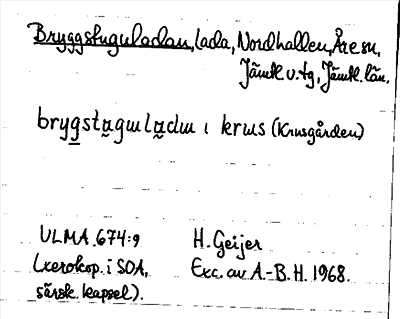 Bryggstuguladan, lada, Nordhallen, Åre sn,
Jämtl. v. tg, Jämtl. län.
brygstagɯladɯ ı krɯs (Krusgården)
ULMA 674:9 H. Geijer
(xerokop. i SOA, Exc. av A.-B. H. 1968.
särsk. kapsel).